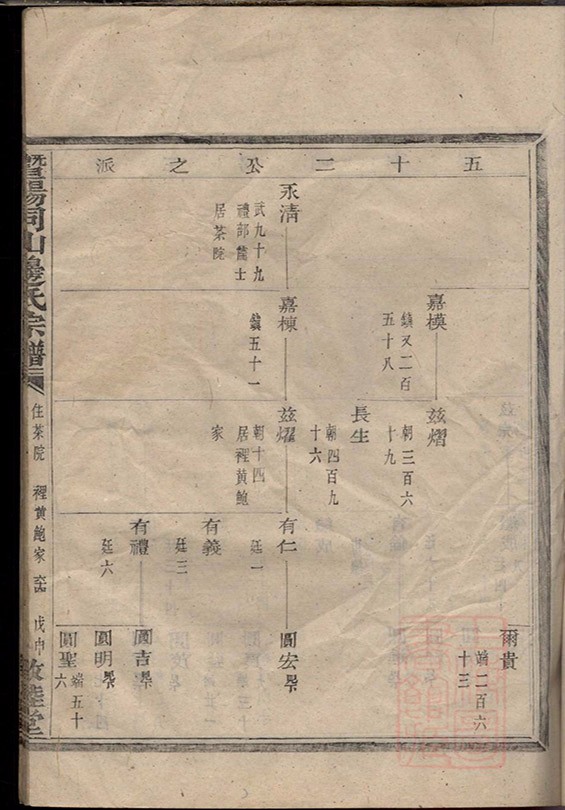 五十二公之派
爾貴
端二百六
十三
嘉模
鎮又二百
五十八
玆熠
朝三百六
十九
長生
朝四百九
十六
永清
武九十九
禮部儒士
居茶院
嘉棟
鎮五十一
玆燿
朝十四
居裡黄鮑
家
有仁
廷一
圓宏
有義
廷三
有禮
廷六
圓吉
圓明
圓聖
端五十
六
暨陽同山邊氏宗譜
住茶院 裡黄鮑家
戊申
敦睦堂